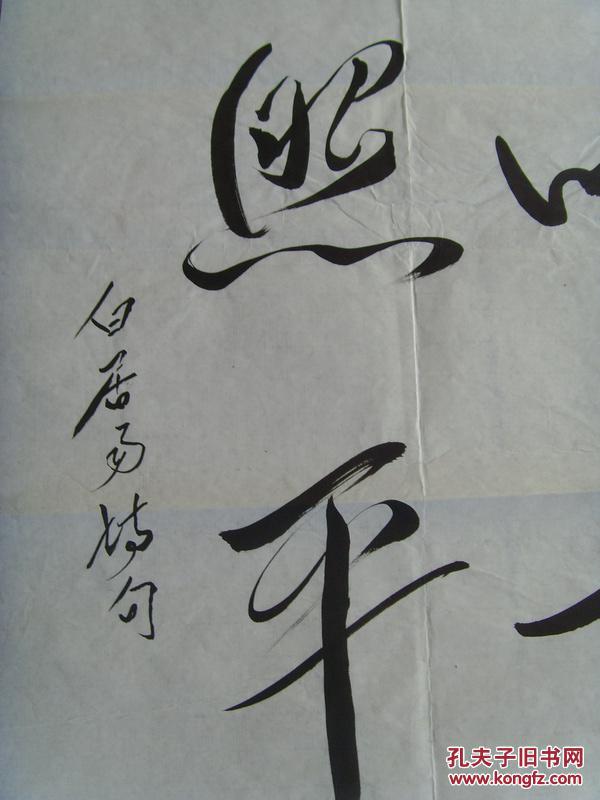 照平
白居易诗句
孔夫子旧书网
www.kongfz.com